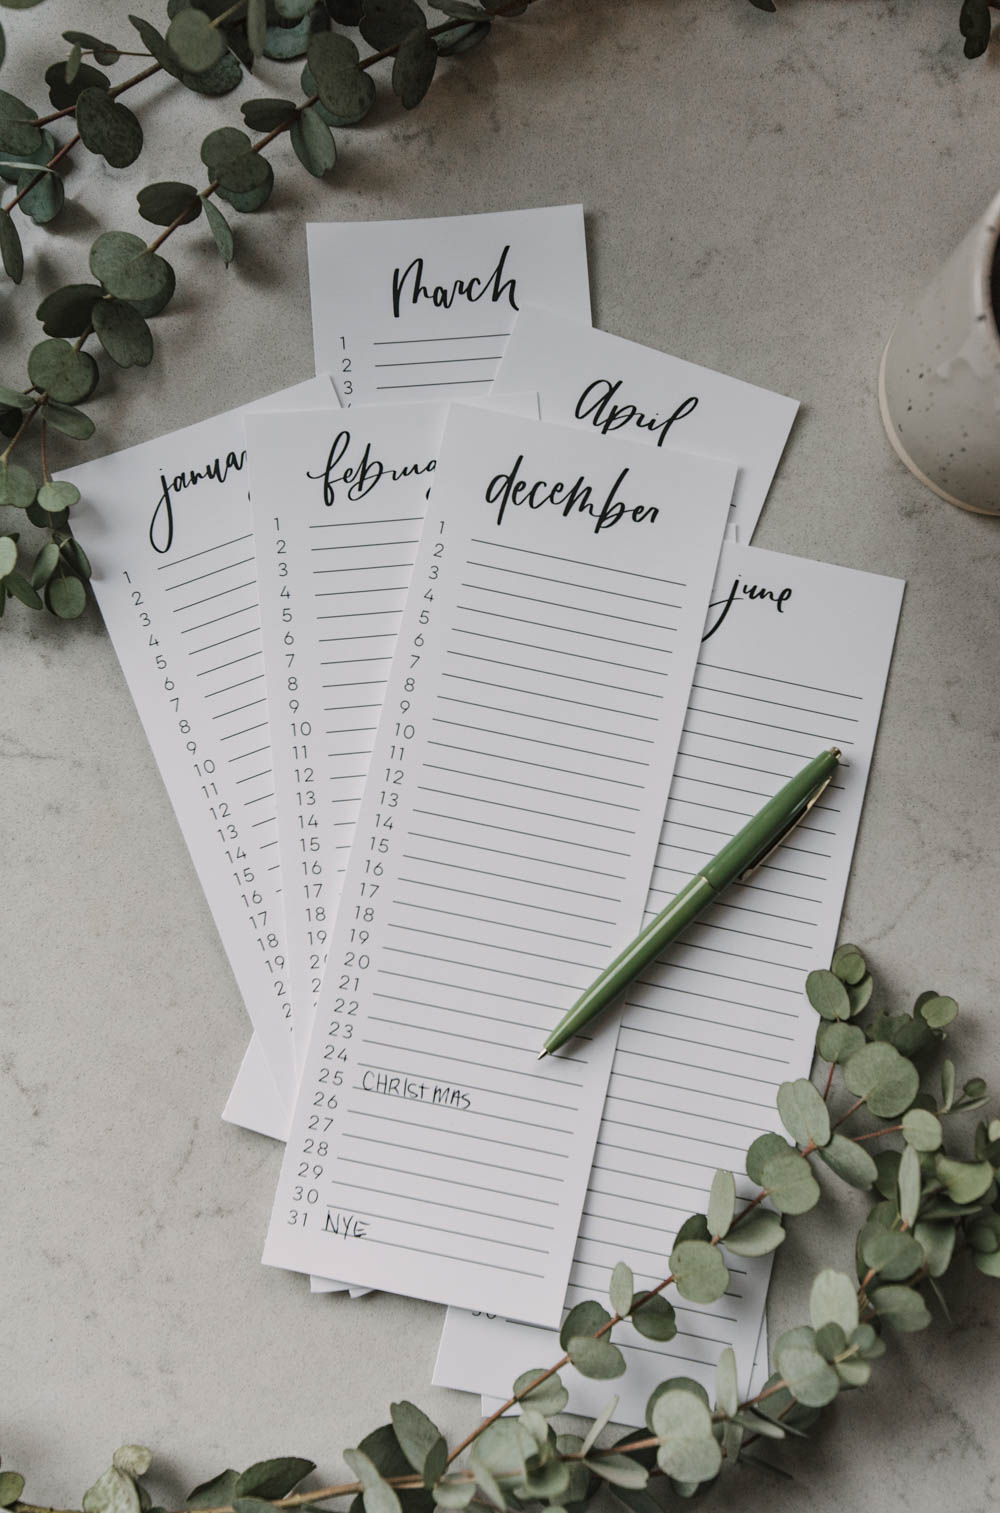 march
1
2
3
april
januar
1
2
3
4
5
6
7
8
9
10
11
12
13
14
15
16
17
18
19
2
2
februa
1
2
3
4
5
6
7
8
9
10
11
12
13
14
15
16
17
18
19
2
2
december
1
2
3
4
5
6
7
8
9
10
11
12
13
14
15
16
17
18
19
20
21
22
23
24
25 CHRISTMAS
26
27
28
29
30
31 NYE
june